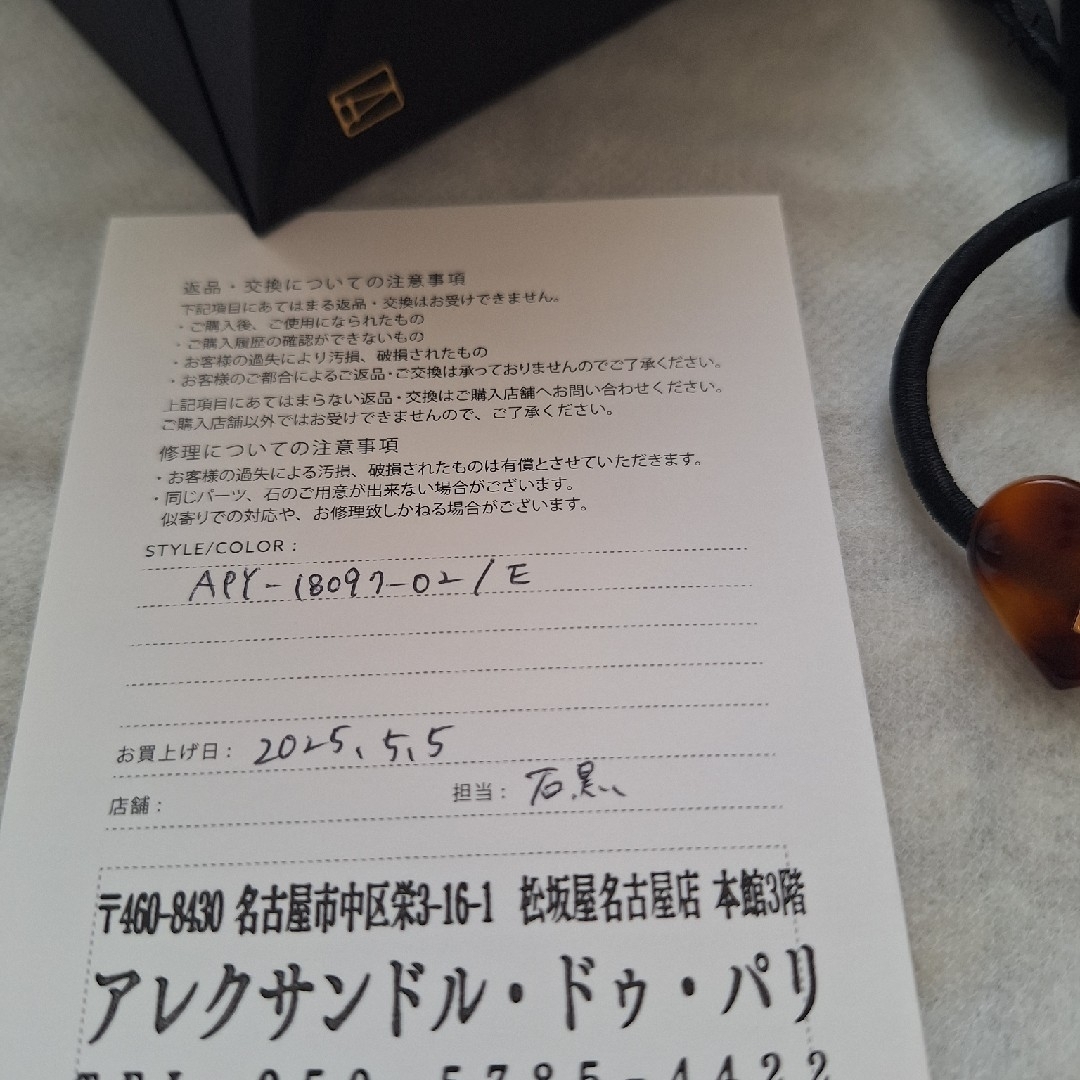 返品・交換についての注意事項
下記項目にあてはまる返品・交換はお受けできません。
・ご購入後、ご使用になられたもの
・ご購入履歴の確認ができないもの
・お客様の過失により汚損、破損されたもの
・お客様のご都合によるご返品・ご交換は承っておりませんのでご了承ください。
上記項目にあてはまらない返品・交換はご購入店舗へお問い合わせください。
ご購入店舗以外ではお受けできませんので、ご了承ください。
修理についての注意事項
・お客様の過失による汚損、破損されたものは有償とさせていただきます。
・同じパーツ、石のご用意が出来ない場合がございます。
似寄りでの対応や、お修理致しかねる場合がございます。
STYLE/COLOR：
APY-18097-02/E
お買上げ日：2025、5、5
店舗： 担当：石黒
〒460-8430 名古屋市中区栄3-16-1 松坂屋名古屋店 本館3階
アレクサンドル・ドゥ・パリ
TEL 050-5785-4422